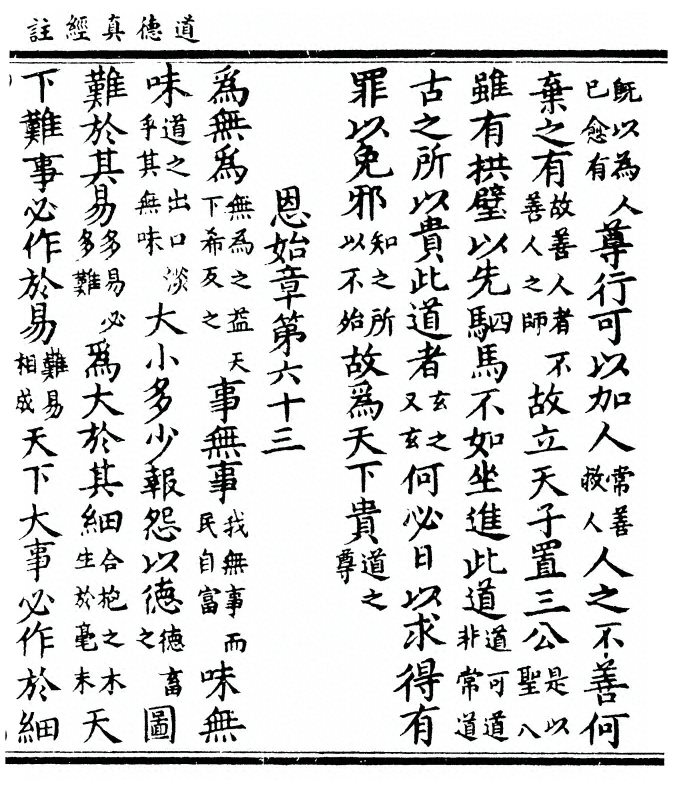 道德真經註
既以為人已愈有尊行可以加人常善救人人之不善何
棄之有故善人者不善人之師故立天子置三公是以聖人
雖有拱璧以先駟馬不如坐進此道道可道非常道
古之所以貴此道者玄之又玄何必日以求得有
罪以免邪知之所以不始故爲天下貴道之尊
恩始章第六十三
爲無爲無為之益天下希及之事無事我無事而民自富味無
味道之出口淡乎其無味大小多少報怨以德德畜之圖
難於其易多易必多難爲大於其細合抱之木生於毫末天
下難事必作於易難易相成天下大事必作於細